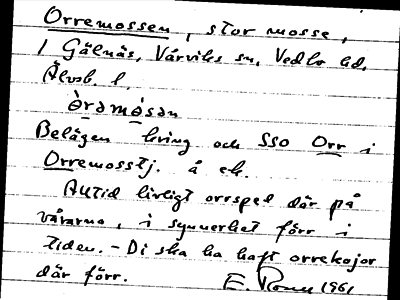 Orremossen, stor mosse,
i Gälnäs, Vårviks sn, Vedbo hd,
Älvsb. l.
òrəmòsən
Belägen kring och SSO Orr i
Orremosstj. å ek.
Alltid livligt orrspel där på
vårarna, i synnerhet förr i
tiden. – De ska ha haft orrekojor
där förr.
E. 1961